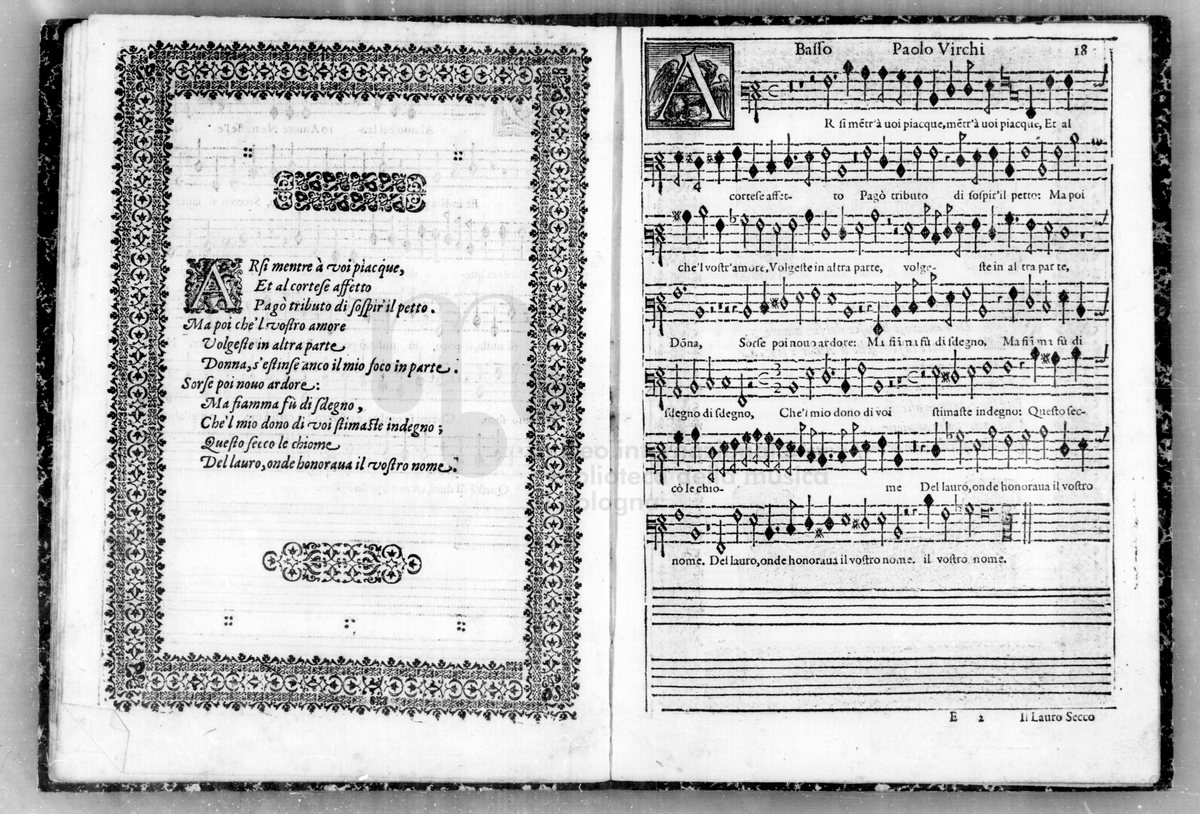 ARsi mentre à voi piacque,
Et al cortese affetto
Pagò tributo di sospir'il petto.
Ma poi che'l vostro amore
Volgeste in altra parte
Donna, s'estinse anco il mio foco in parte.
Sorse poi novo ardore:
Ma fiamma fù di sdegno,
Che'l mio dono di voi stimaste indegno;
Questo secco le chiome
Del lauro, onde honoraua il vostro nome.
Basso Paolo Virchi 18
AR si mẽtr'à uoi piacque, mẽtr'à uoi piacque, Et al
cortese affet- to Pagò tributo di sospir'il petto: Ma poi
che'l vostr'amore, Volgeste in altra parte, volge- ste in al tra par te,
Dõna, Sorse poi nouo ardore: Ma fiãma fù di sdegno, Ma fiãma fù di
sdegno di sdegno, Che'l mio dono di voi stimaste indegno: Questo sec-
cò le chio- me Del lauro, onde honoraua il vostro
nome. Del lauro, onde honoraua il vostro nome. il vostro nome.
E 2 Il Lauro Secco
biblioteca della musica
bologna